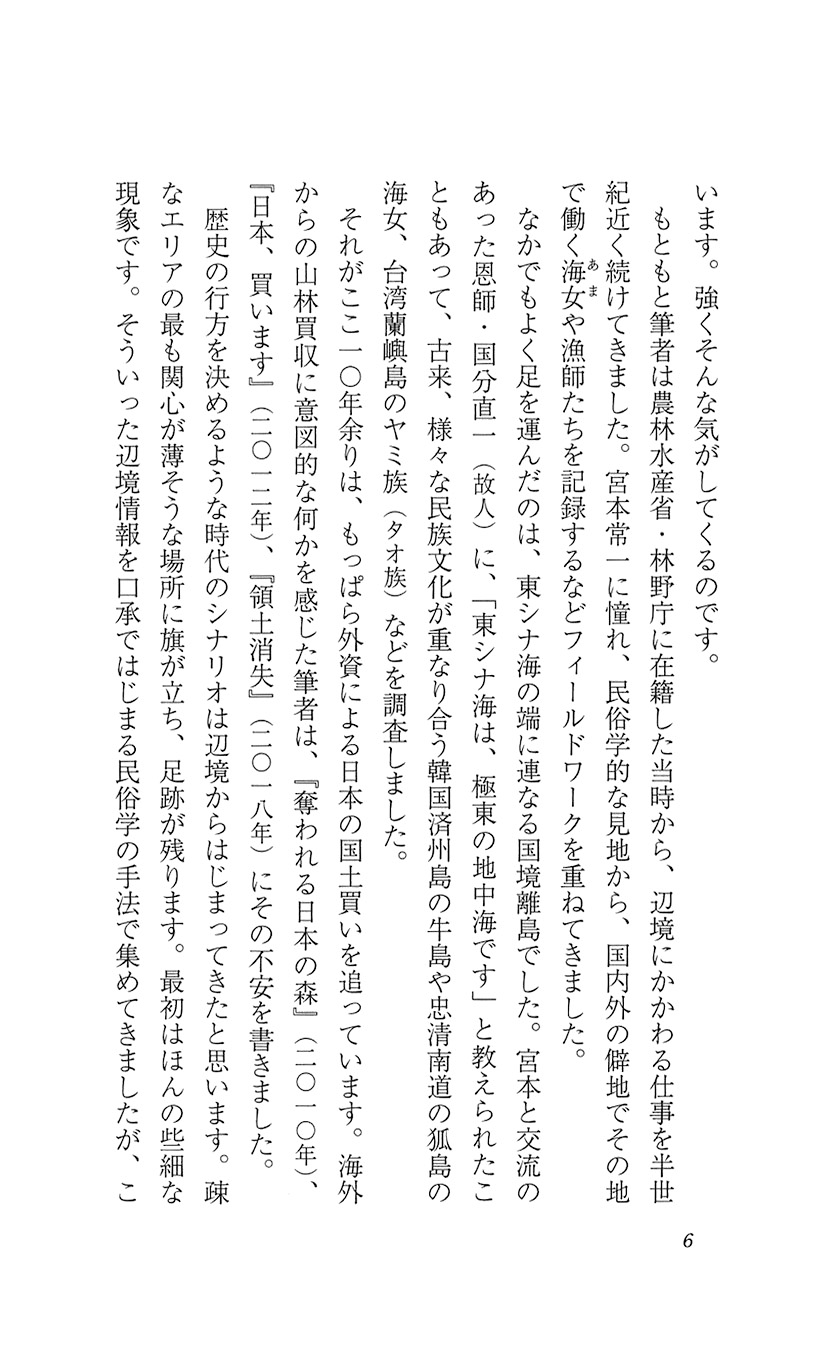 います。強くそんな気がしてくるのです。
もともと筆者は農林水産省・林野庁に在籍した当時から、辺境にかかわる仕事を半世
紀近く続けてきました。宮本常一に憧れ、民俗学的な見地から、国内外の僻地でその地
で働く海女や漁師たちを記録するなどフィールドワークを重ねてきました。
あま
なかでもよく足を運んだのは、東シナ海の端に連なる国境離島でした。宮本と交流の
あった恩師・国分直一（故人）に、「東シナ海は、極東の地中海です」と教えられたこ
ともあって、古来、様々な民族文化が重なり合う韓国済州島の牛島や忠清南道の狐島の
海女、台湾蘭嶼島のヤミ族（タオ族）などを調査しました。
それがここ一〇年余りは、もっぱら外資による日本の国土買いを追っています。海外
からの山林買収に意図的な何かを感じた筆者は、『奪われる日本の森』（二〇一〇年）、
『日本、買います』（二〇一二年）、『領土消失』（二〇一八年）にその不安を書きました。
歴史の行方を決めるような時代のシナリオは辺境からはじまってきたと思います。疎
なエリアの最も関心が薄そうな場所に旗が立ち、足跡が残ります。最初はほんの些細な
現象です。そういった辺境情報を口承ではじまる民俗学の手法で集めてきましたが、こ
6